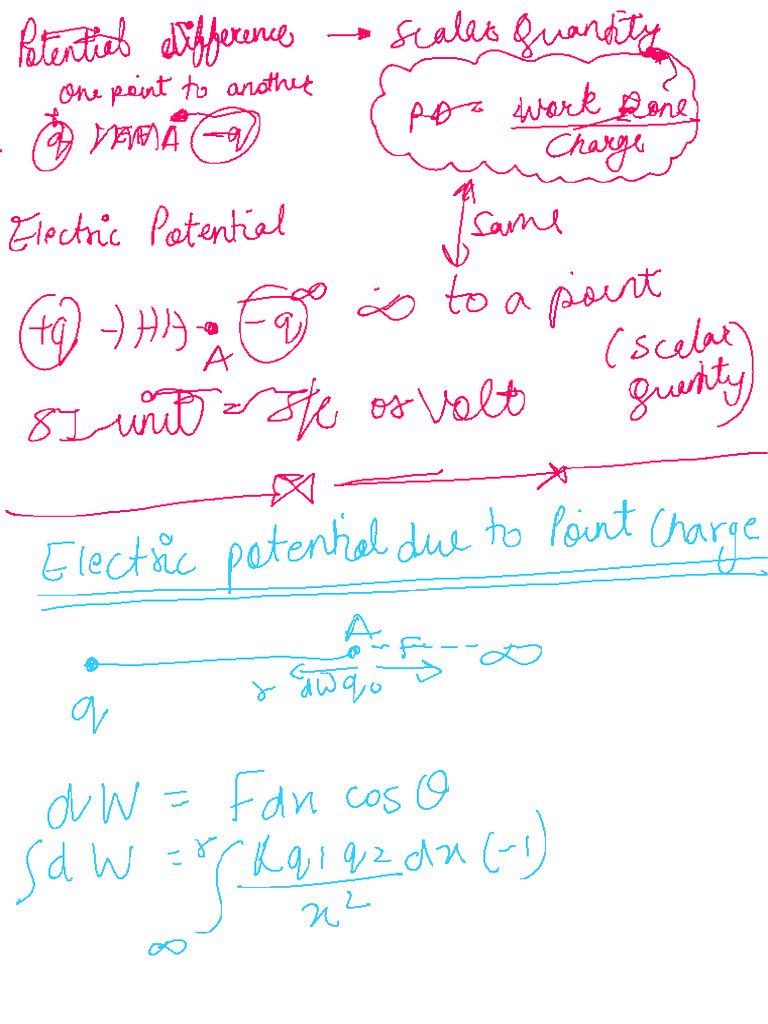 Potential difference → Scalar Quantity
one point to another
PD = Work Done
Charge
+q A -q
Electric Potential
Same
∞ to a point
+q A -q ∞
(Scalar
quantity)
SI unit = J/c or Volt
Electric potential due to Point Charge
A
F ∞
q r dW q₀
dW = Fdx cosθ
∫dW = ∞∫r Kq1q2 dx (-1)
x²